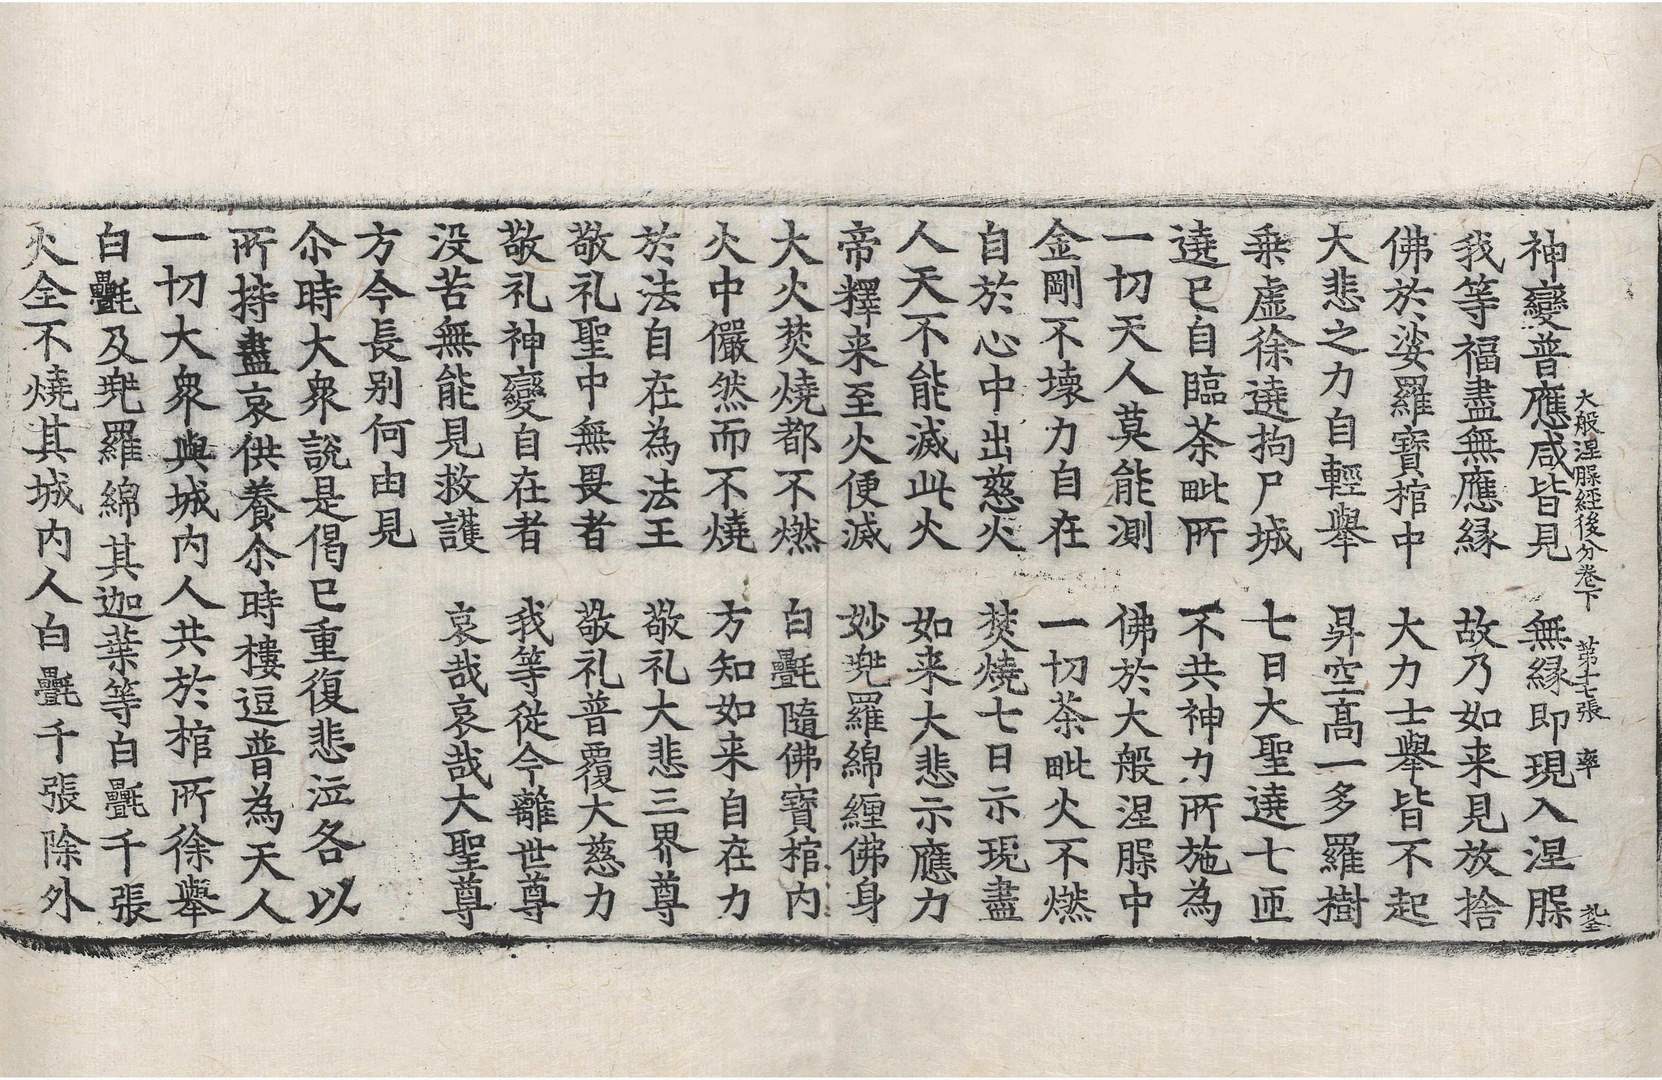 大般涅槃經後分卷下　第十七張　率
神變普應咸皆見　無縁即現入涅槃
我等福盡無應縁　故乃如来見放捨
佛於娑羅寶棺中　大力士舉皆不起
大悲之力自輕舉　昇空髙一多羅樹
乗虚徐遶拘尸城　七日大聖遶七匝
遶已自臨茶毗所　不共神力所施為
一切天人莫能測　佛於大般涅槃中
金剛不壞力自在　一切茶毗火不燃
自於心中出慈火　焚燒七日示現盡
人天不能滅此火　如来大悲示應力
帝釋来至火便滅　妙兠羅綿纏佛身
大火焚燒都不燃　白㲲隨佛寶棺内
火中儼然而不燒　方知如来自在力
於法自在為法王　敬礼大悲三界尊
敬礼聖中無畏者　敬礼普覆大慈力
敬礼神變自在者　我等從今離世尊
没苦無能見救護　哀哉哀哉大聖尊
方今長别何由見
尒時大衆説是偈已重復悲泣各以
所持盡哀供養尒時樓逗普為天人
一切大衆與城内人共於棺所徐舉
白㲲及兠羅綿其迦葉等白㲲千張
火全不燒其城内人白㲲千張除外